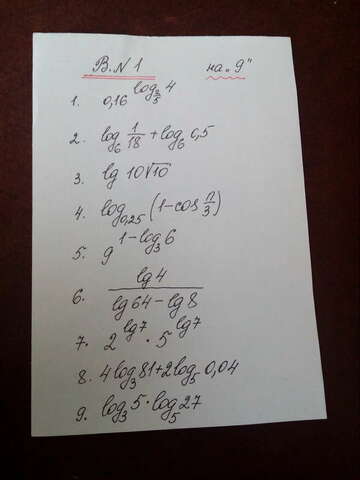 В. N 1 на „9"
1. 0,16^{log_{2/5} 4}
2. log₆ 1/18 + log₆ 0,5
3. lg 10√10
4. log_{0,25} (1-cos π/3)
5. 9^{1-log₃6}
6. lg4 / (lg64 - lg8)
7. 2^{lg7} · 5^{lg7}
8. 4log₃81+2log₅0,04
9. log₃5 · log₅27